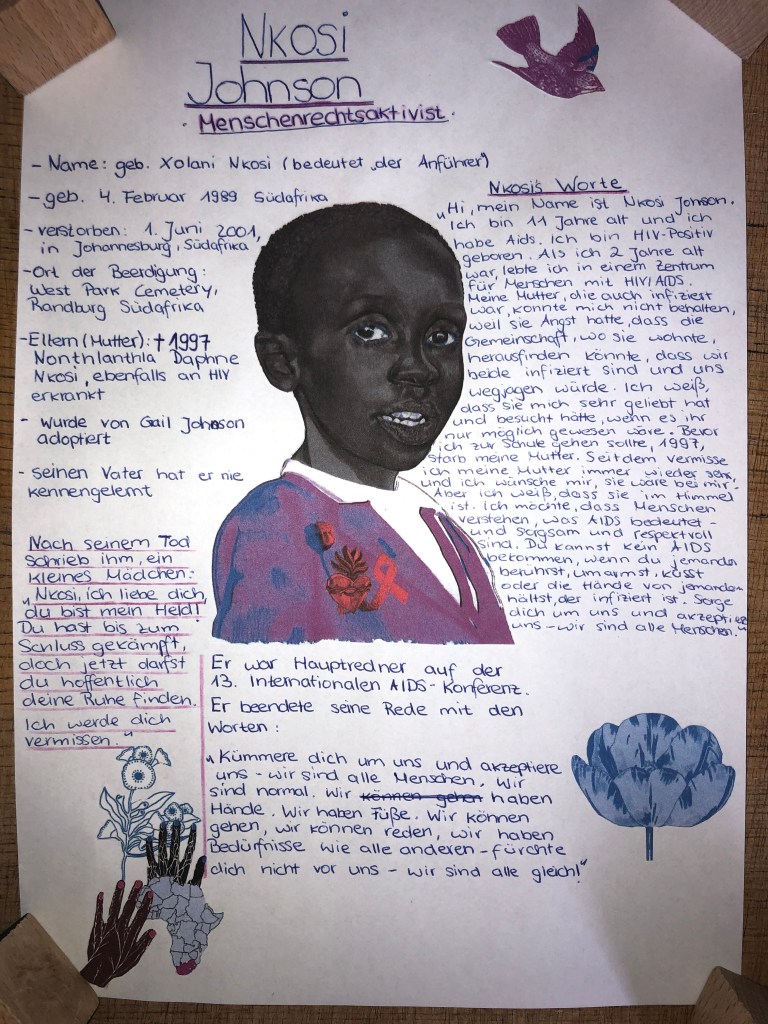 Nkosi
Johnson
· Menschenrechtsaktivist ·
- Name: geb. Xolani Nkosi (bedeutet „der Anführer")
- geb. 4. Februar 1989 Südafrika
- verstorben: 1. Juni 2001,
in Johannesburg, Südafrika
- Ort der Beerdigung:
West Park Cemetery,
Randburg Südafrika
- Eltern (Mutter): † 1997
Nonthlanthla Daphne
Nkosi, ebenfalls an HIV
erkrankt
- wurde von Gail Johnson
adoptiert
- seinen Vater hat er nie
kennengelernt
Nkosi's Worte
„Hi, mein Name ist Nkosi Johnson.
Ich bin 11 Jahre alt und ich
habe Aids. Ich bin HIV-Positiv
geboren. Als ich 2 Jahre alt
war, lebte ich in einem Zentrum
für Menschen mit HIV/AIDS.
Meine Mutter, die auch infiziert
war, konnte mich nicht behalten,
weil sie Angst hatte, dass die
Gemeinschaft, wo sie wohnte,
herausfinden könnte, dass wir
beide infiziert sind und uns
wegjagen würde. Ich weiß,
dass sie mich sehr geliebt hat
und besucht hätte, wenn es ihr
nur möglich gewesen wäre. Bevor
ich zur Schule gehen sollte, 1997,
starb meine Mutter. Seitdem vermisse
ich meine Mutter immer wieder sehr,
und ich wünsche mir, sie wäre bei mir -
Aber ich weiß, dass sie im Himmel
ist. Ich möchte, dass Menschen
verstehen, was AIDS bedeutet -
und Sorgsam und respektvoll
sind. Du kannst kein AIDS
bekommen, wenn du jemanden
berührst, umarmst, küsst
oder die Hände von jemanden
hältst, der infiziert ist. Sorge
dich um uns und akzeptiere
uns - wir sind alle Menschen."
Nach seinem Tod
schrieb ihm, ein
kleines Mädchen:
„Nkosi, ich liebe dich,
du bist mein Held!
Du hast bis zum
Schluss gekämpft,
doch jetzt darfst
du hoffentlich
deine Ruhe finden.
Ich werde dich
vermissen."
Er war Hauptredner auf der
13. Internationalen AIDS-Konferenz.
Er beendete seine Rede mit den
Worten:
„Kümmere dich um uns und akzeptiere
uns - wir sind alle Menschen. Wir
sind normal. Wir können gehen haben
Hände. Wir haben Füße. Wir können
gehen, wir können reden, wir haben
Bedürfnisse wie alle anderen - fürchte
dich nicht vor uns - wir sind alle gleich!"